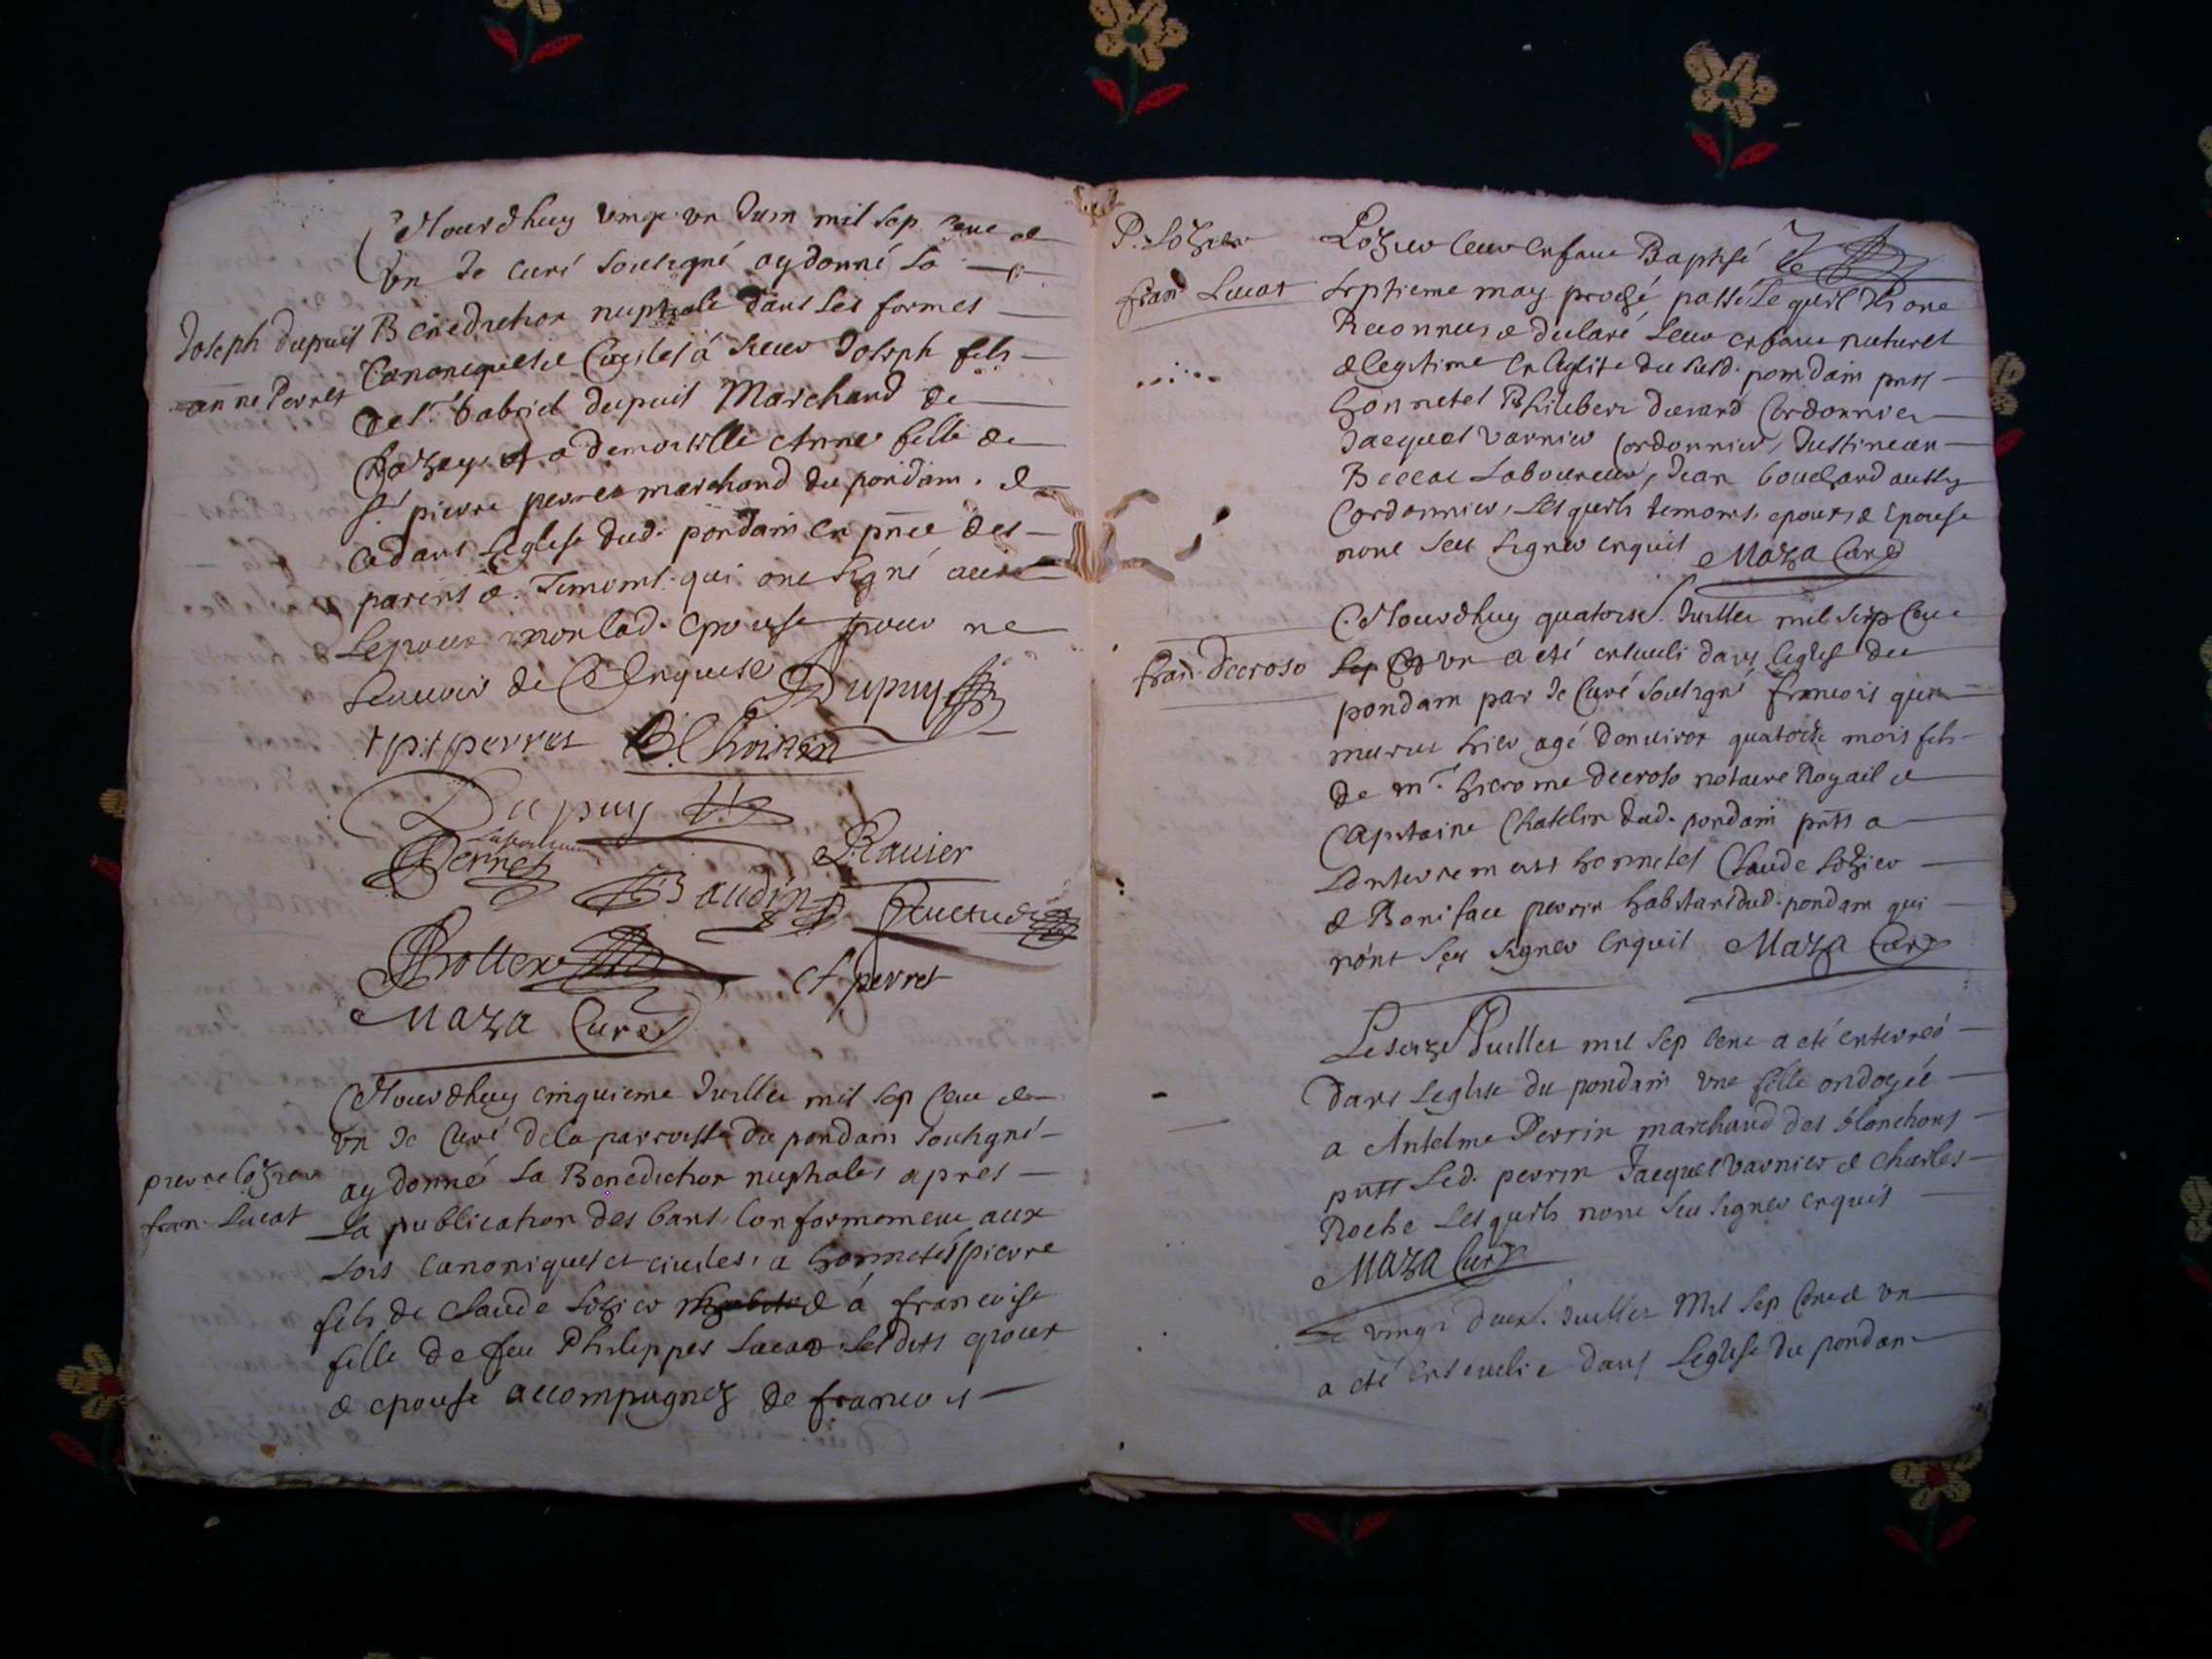 Ajourdhuy vingt un Juin mil sep cent et
un Je curé soubsigné ay donné la
Joseph dupuit
anne Perret
Benediction nuptiale dans les formes
Canoniques et Civiles á sieur Joseph fils
de Sr. Gabriel dupuit Marchand de
et a demoiselle Anne fille de
Sr. pierre perret marchand du pondain. et
ce dans Leglise dud. pondain en pnce des
parens et Temoins qui ont signé avec
Lepoux non lad. epouse pour ne
scavoir de Enquise Dupuy
p: perret
Dupuy
Perret
Ravier
Baudin
A perret
Maza Curé
Ajourdhuy cinquieme Juillet mil sep cent et
un Je Curé de la parroisse du pondain soubsigné
pierre lozier
fran. Lucat
ay donné La Benediction nuptiales apres
La publication des bans Conformement aux
Lois canoniques et civiles, a honnetes pierre
fils de Claude Lozier et á francoise
fille de feu Philippes Lucat Lesdits epoux
et epouse accompagnez de francois
P. Lozier
fran Lucat
Lozier leur enfant Baptisé le
septieme may proché passé Lequel Ils ont
Reconnus et declaré Leur enfant naturel
et legitime en leglise du susd. pondain pnts
honnetes Philibert durand Cordonnier
Jacques varnier Cordonnier, Justinean
Beccat Laboureur, Jean bouchard aussy
Cordonnier, Lesquels temoins, epoux, et Epouse
nont sceu signer enquis Maza Curé
Ajourdhuy quatorse. Juillet mil sep Cent
fran. decroso
sep et un a eté enseveli dans leglise du
pondain par Je Curé soubsigné francois qui
mourut hier agé denviron quatorze mois fils
de mr. hierome decroso notaire Royail et
Capitaine Chatelin dud. pondain pnts a
Lenterrement honnetes Claude Lozier
et Boniface perrin habitans dud. pondain qui
nont sceu signer enquis Maza Curé
Le seize Juillet mil sep cent a eté enterreé
dans Leglise du pondain une fille ondoyée
a Antelme Perrin marchand des blanchons
pnts Led. perrin Jacques varnier et Charles
Roche Lesquels nont sceu signer enquis
Maza Curé
Le vingt deux. Juillet Mil sep Cent et un
a eté ensevelie dans Leglise du pondain